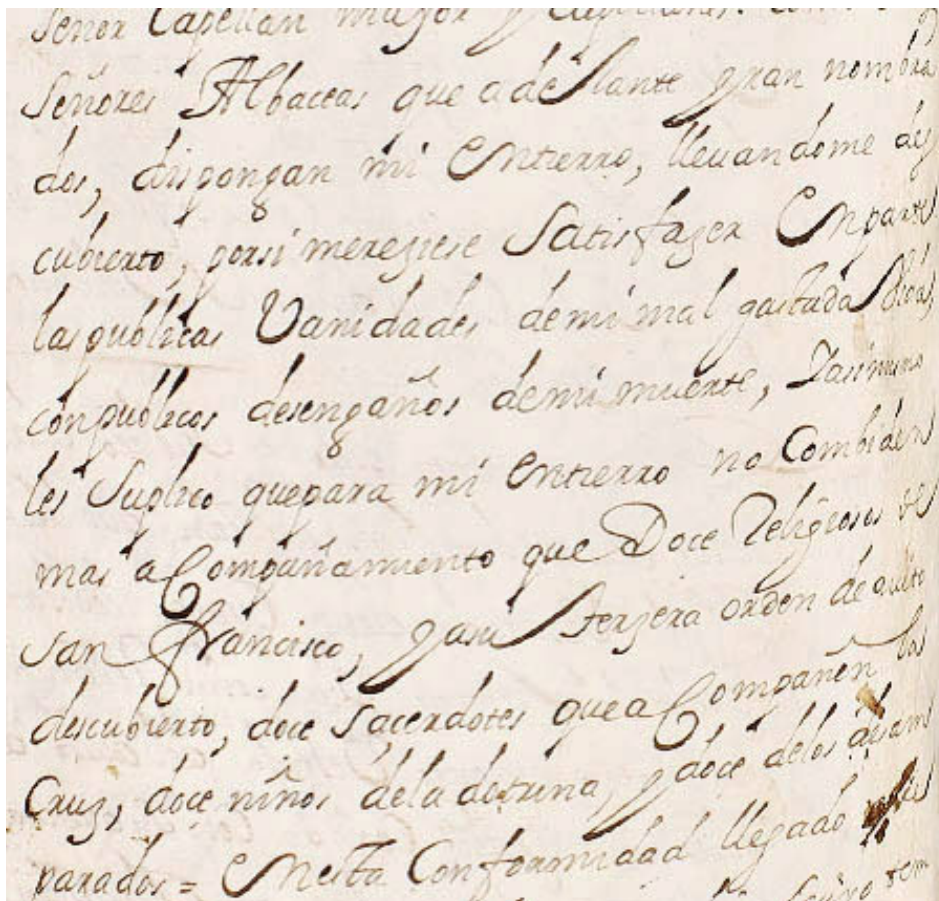 señor Capellan mayor y Capellanes.
señores Albaceas que adelante yran nombra
dos, dispongan mi Entierro, lleuandome des
cubierto, porsi mereziese Satisfazer Enparte
las publicas Vanidades demi mal gastada Vida,
con publicos desengaños demi muerte, Yasimismo
les Suplico quepara mi Entierro no Combiden
mas aCompañamiento que Doce Religiosos de
san francisco, yasu terzera orden de auito
descubierto, doce sacerdotes que aCompañen la
Cruz, doce niños dela dotrina, y doce delos desam
parados = Enesta Conformidad llegado